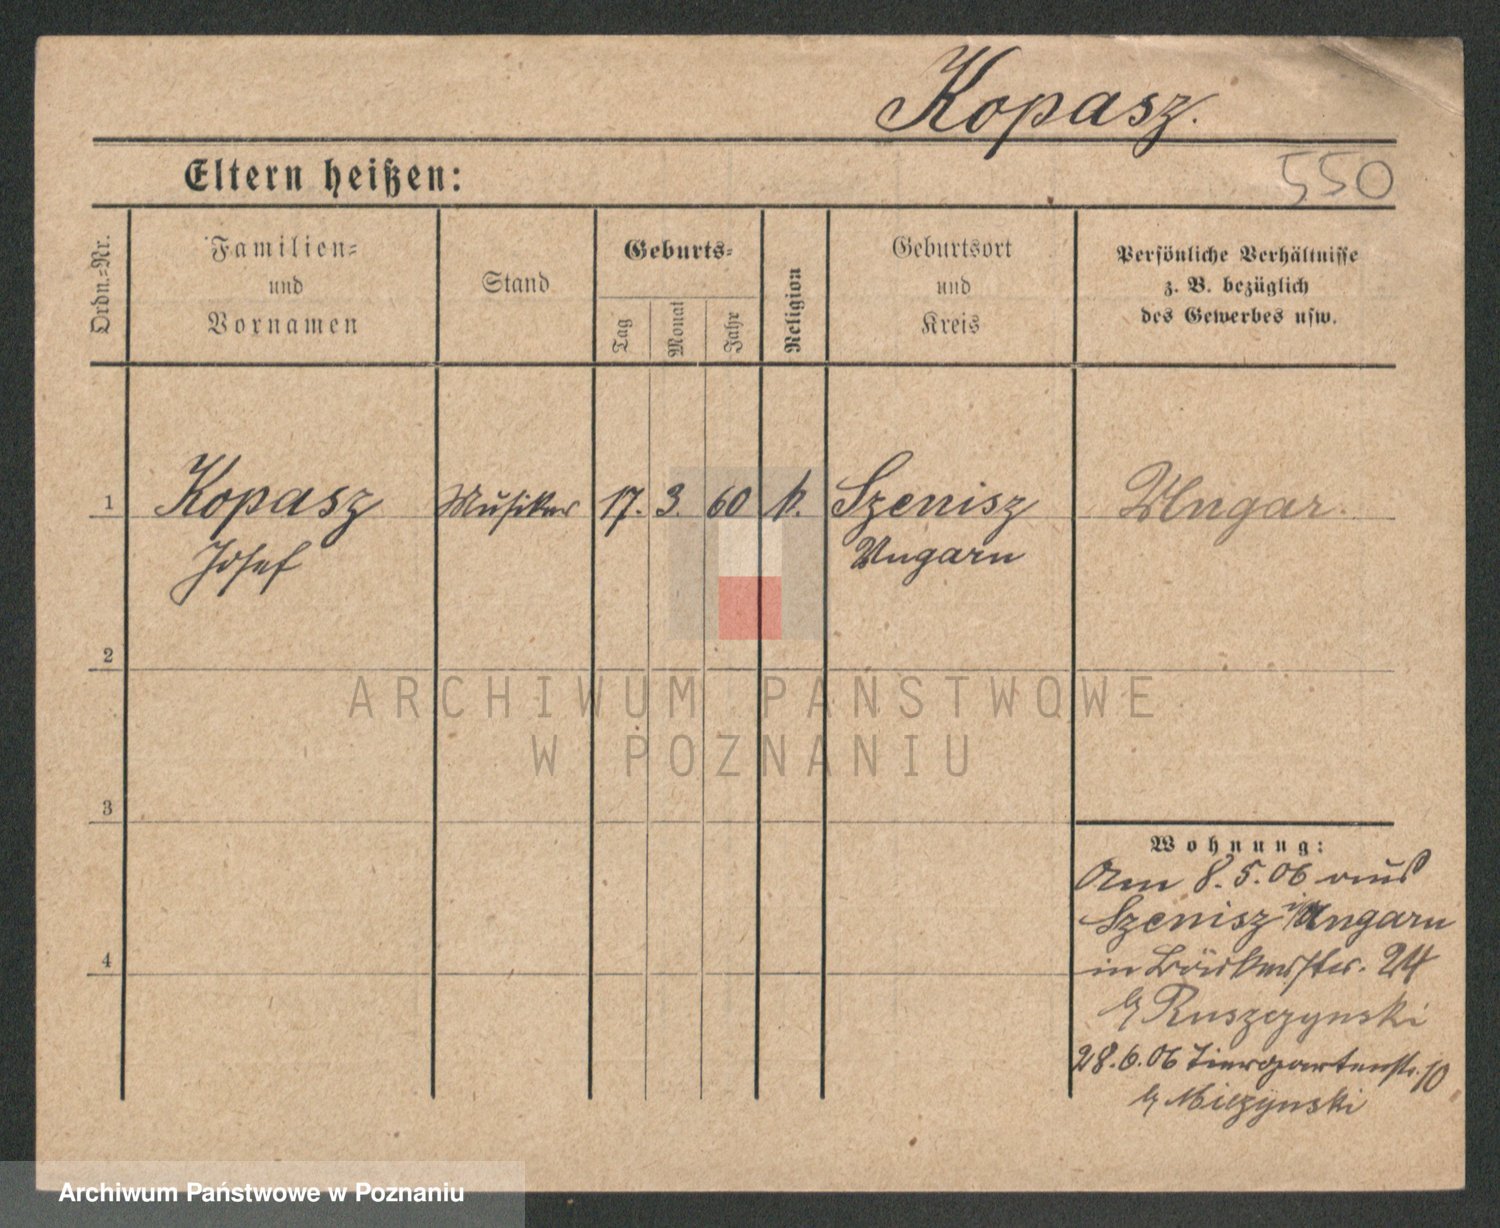 Kopasz.
550
Eltern heißen:
Ordn.=Nr.
Familien=
und
Vornamen
Stand
Geburts=
Tag
Monat
Jahr
Religion
Geburtsort
und
Kreis
Persönliche Verhältnisse
z. B. bezüglich
des Gewerbes usw.
1
Kopasz Musiker 17. 3. 60 k. Szenisz Ungar.
Josef Ungarn
2
ARCHIWUM PAŃSTWOWE
W POZNANIU
3
Wohnung:
Am 8.5.06 aus
Szenisz i/Ungarn
4
in Bäckerstr. 24
b/ Ruszczynski
28.6.06 Tiergartenstr. 10
b/ Miczynski
Archiwum Państwowe w Poznaniu